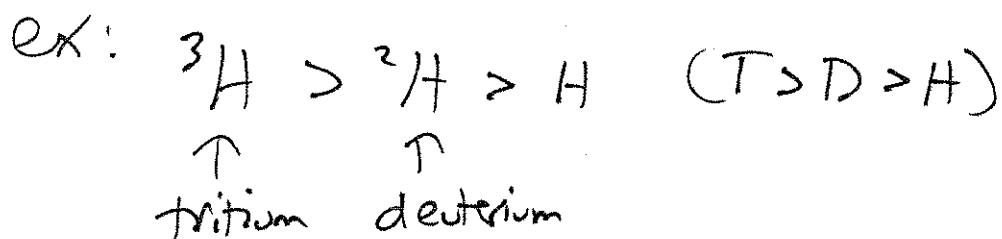 ex: ³H > ²H > H (T > D > H)
↑ ↑
tritium deuterium